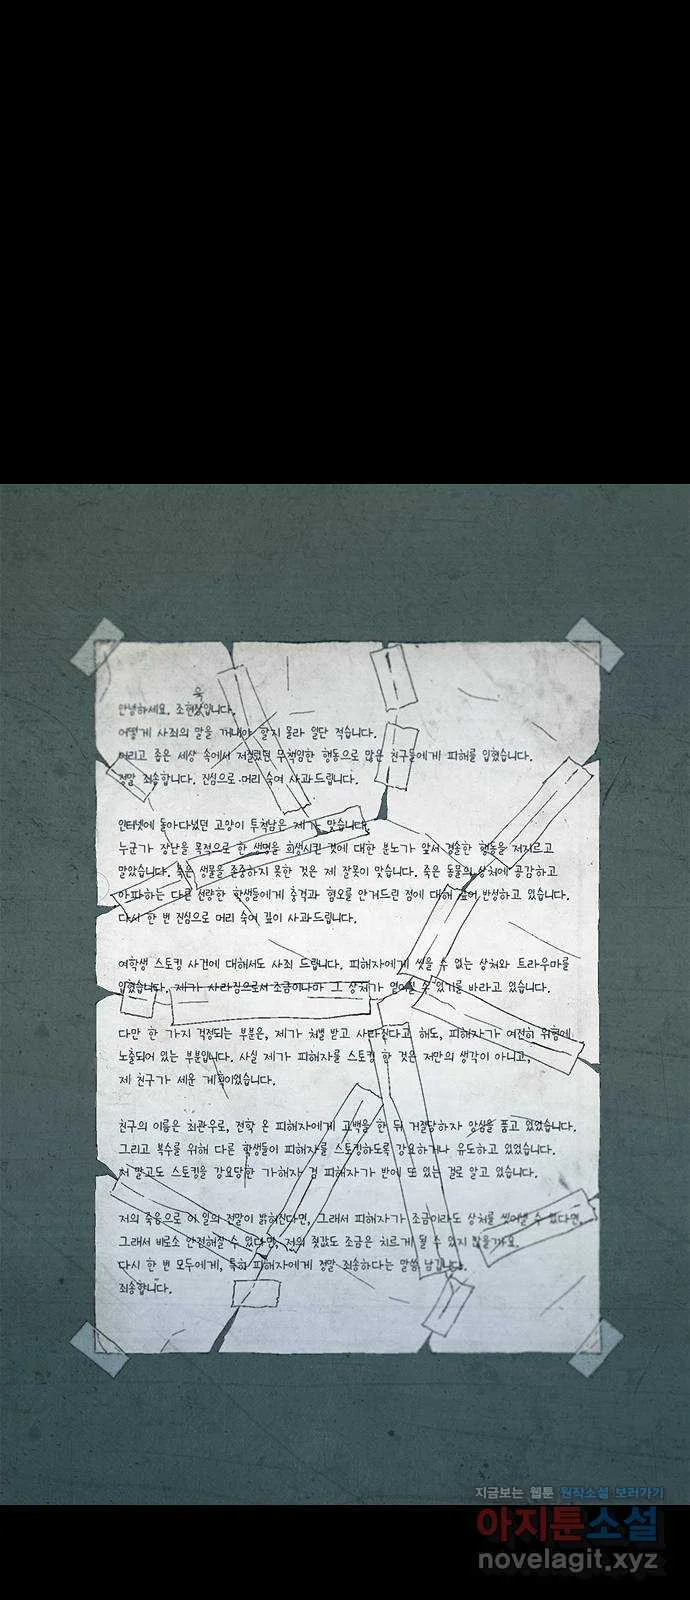 욱
안녕하세요. 조현입니다.
어떻게 사죄의 말을 꺼내야 할지 몰라 일단 적습니다.
어리고 좁은 세상 속에서 저질렀던 무책임한 행동으로 많은 친구들에게 피해를 입혔습니다.
정말 죄송합니다. 진심으로 머리 숙여 사과드립니다.
인터넷에 돌아다녔던 고양이 투척남은 제가 맞습니다.
누군가 장난을 목적으로 한 생명을 희생시킨 것에 대한 분노가 앞서 경솔한 행동을 저지르고
말았습니다. 죽은 생물을 존중하지 못한 것은 제 잘못이 맞습니다. 죽은 동물의 상처에 공감하고
아파하는 다른 선량한 학생들에게 충격과 혐오를 안겨드린 점에 대해 깊이 반성하고 있습니다.
다시 한 번 진심으로 머리 숙여 깊이 사과드립니다.
여학생 스토킹 사건에 대해서도 사죄 드립니다. 피해자에게 씻을 수 없는 상처와 트라우마를
입혔습니다. 제가 사라짐으로서 조금이나마 그 상처가 수 있기를 바라고 있습니다.
다만 한 가지 걱정되는 부분은, 제가 처벌 받고 사라진다고 해도, 피해자가 여전히 위험에
노출되어 있는 부분입니다. 사실 제가 피해자를 스토킹 한 것은 저만의 생각이 아니고,
제 친구가 세운 계획이었습니다.
친구의 이름은 최관우로, 전학 온 피해자에게 고백을 한 뒤 거절당하자 앙심을 품고 있었습니다.
그리고 복수를 위해 다른 학생들이 피해자를 스토킹하도록 강요하거나 유도하고 있었습니다.
저 말고도 스토킹을 강요당한 가해자 겸 피해자가 반에 또 있는 걸로 알고 있습니다.
저의 죽음으로 이 일의 전말이 밝혀진다면, 그래서 피해자가 조금이라도 상처를 씻어낼 수 있다면,
그래서 비로소 안전해질 수 있다면, 저의 죗값도 조금은 치르게 될 수 있지 않을까요.
다시 한 번 모두에게, 특히 피해자에게 정말 죄송하다는 말씀 남깁니다.
죄송합니다.
지금보는 웹툰 원작소설 보러가기
아지툰소설
novelagit.xyz